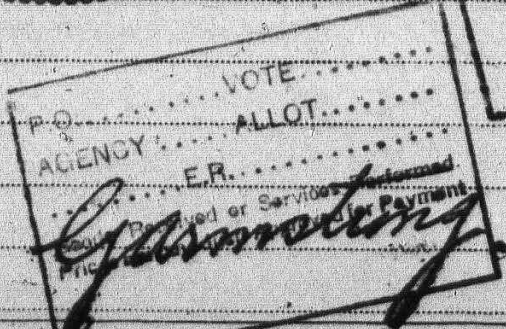 P.O. ........ VOTE..........
AGENCY ..... ALLOT..........
........ E.R. ...............
Goods Received or Services Performed
Prices for Payment